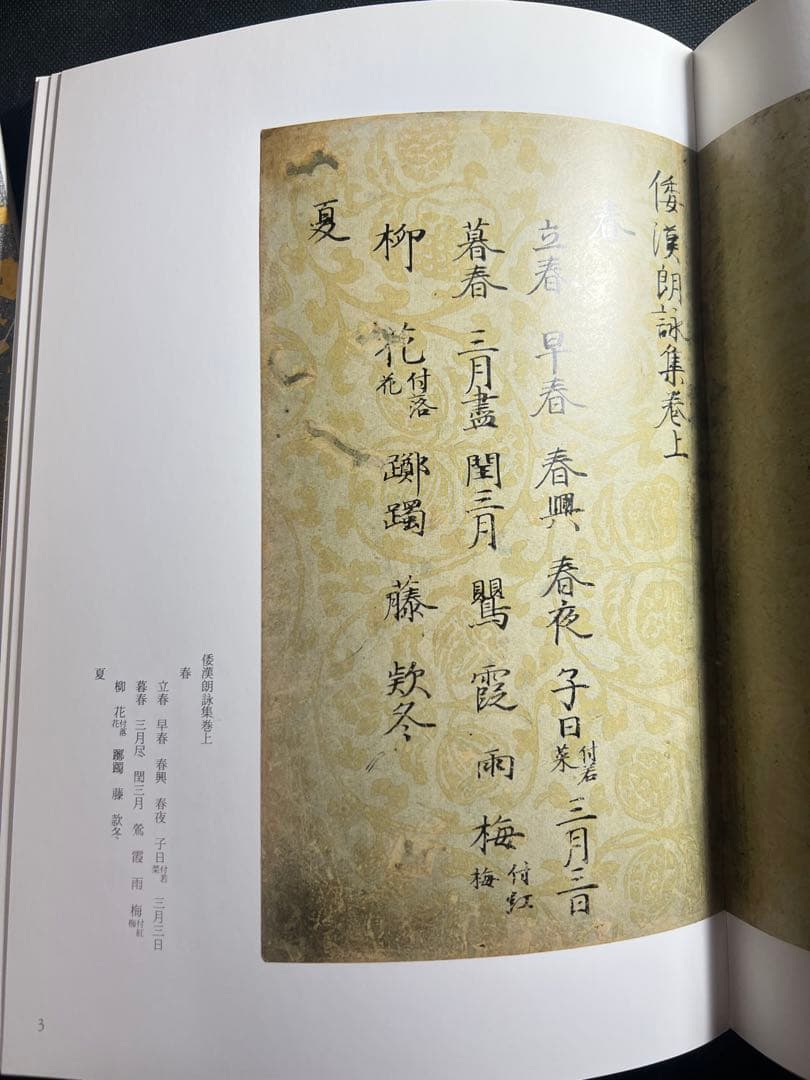 倭漢朗詠集巻上
春
立春 早春 春興 春夜 子日付若菜 三月三日
暮春 三月盡 閏三月 鸎 霞 雨 梅付紅梅
柳 花付落花 躑躅 藤 欵冬
夏
倭漢朗詠集巻上
春
立春 早春 春興 春夜 子日付若菜 三月三日
暮春 三月尽 閏三月 鶯 霞 雨 梅付紅梅
柳 花付落花 躑躅 藤 款冬
夏
3